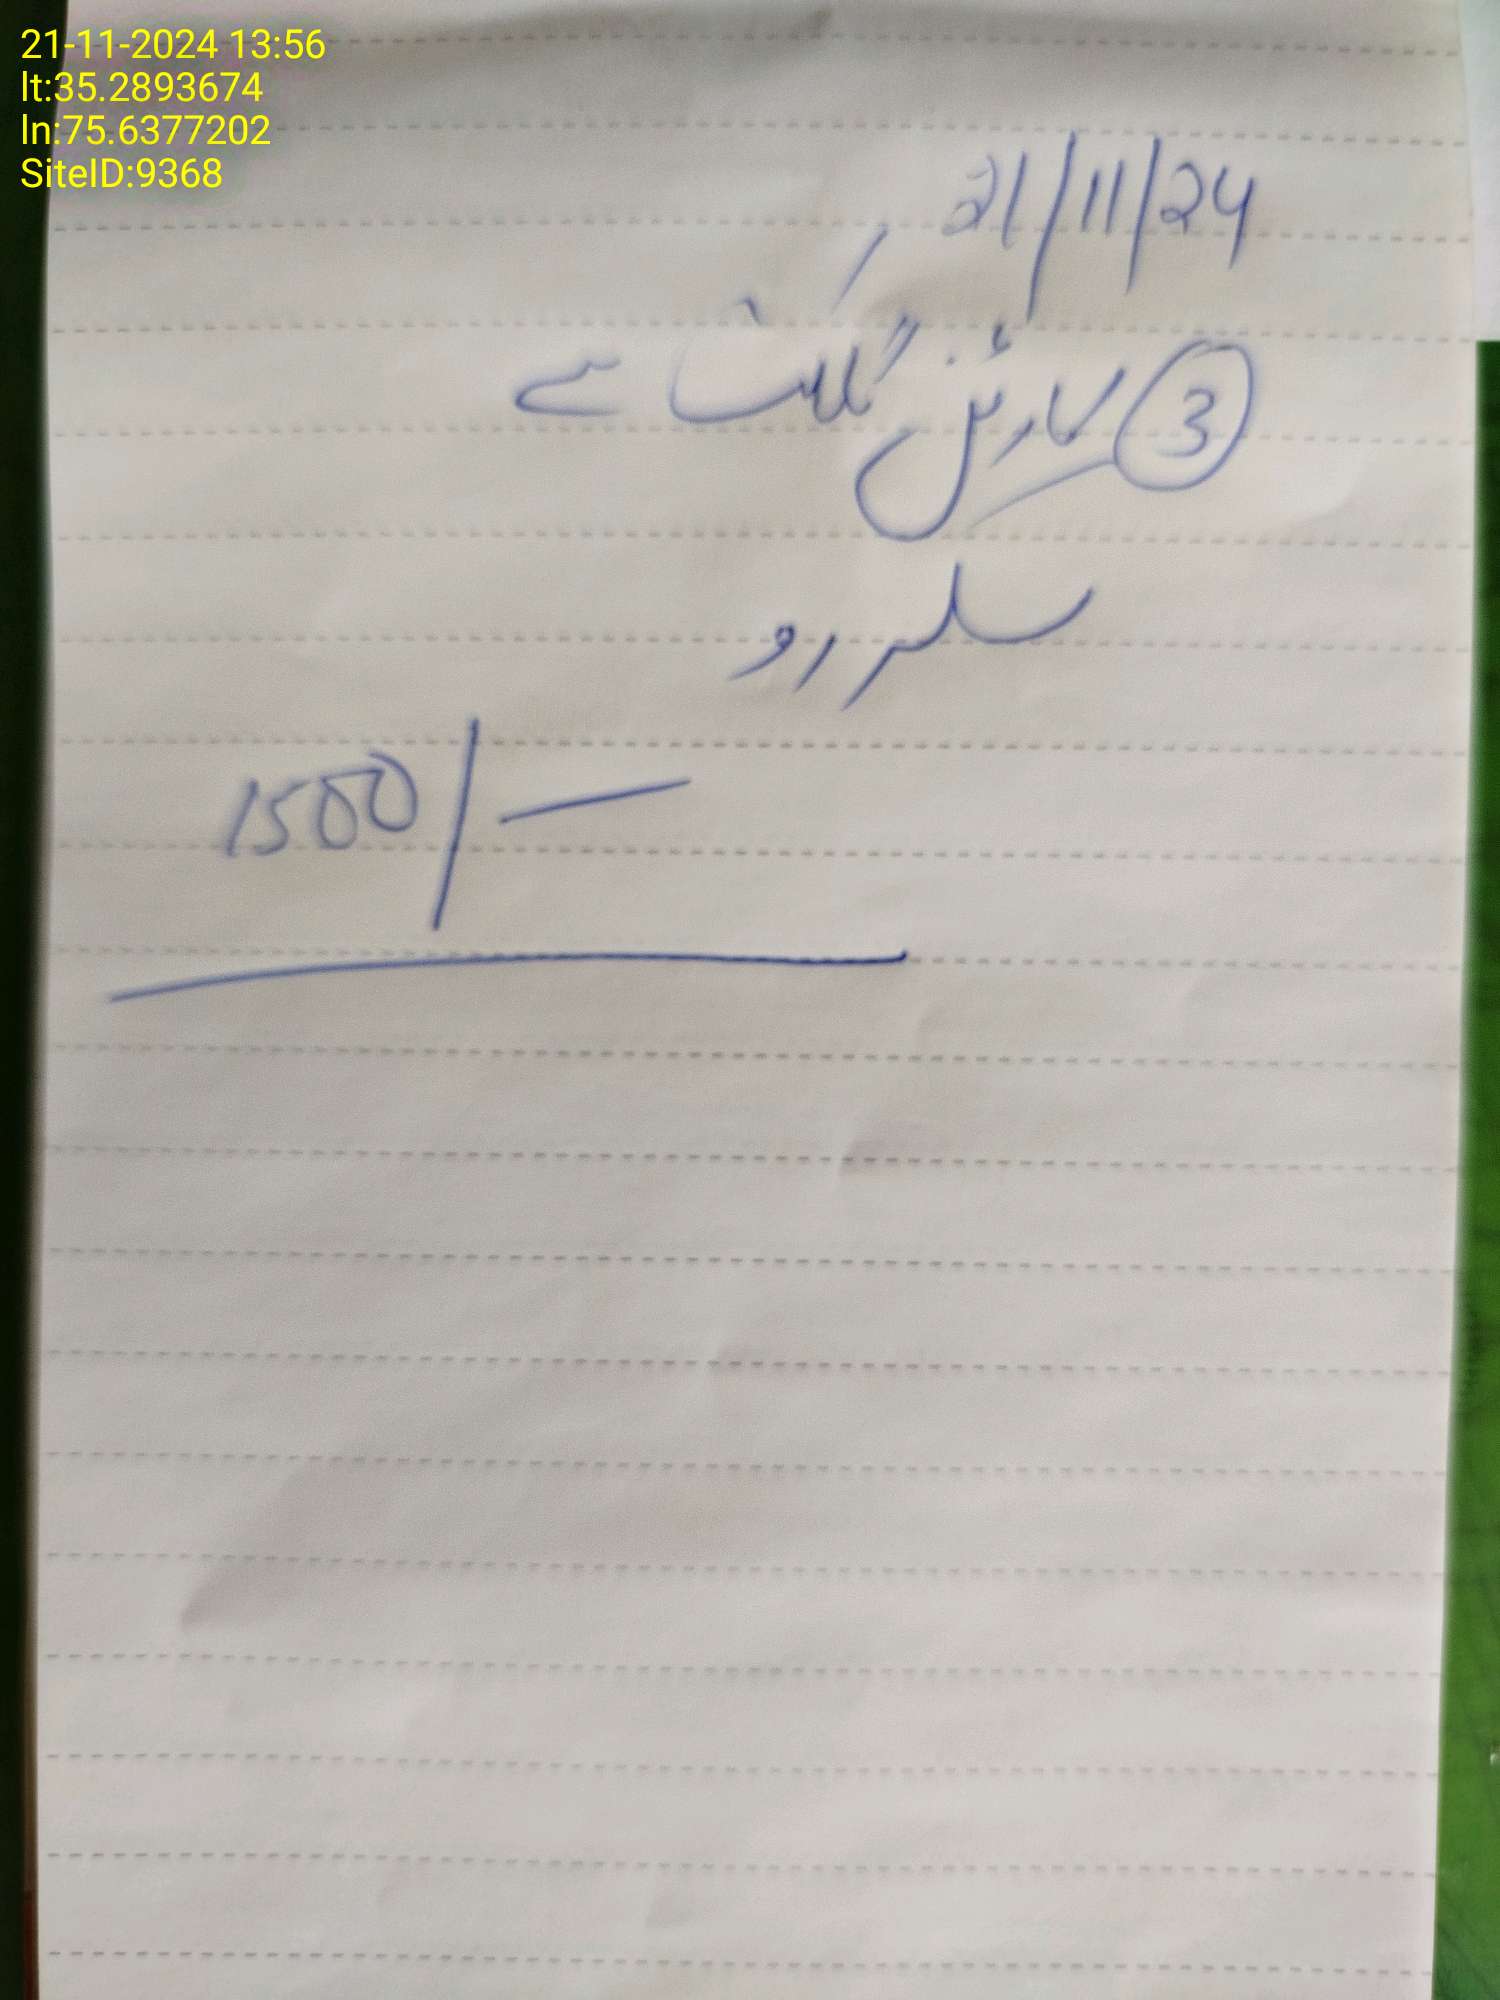 21-11-2024 13:56
lt:35.2893674
ln:75.6377202
SiteID:9368
21/11/24
3 کارٹن گلگت سے
سکردو
1500/-